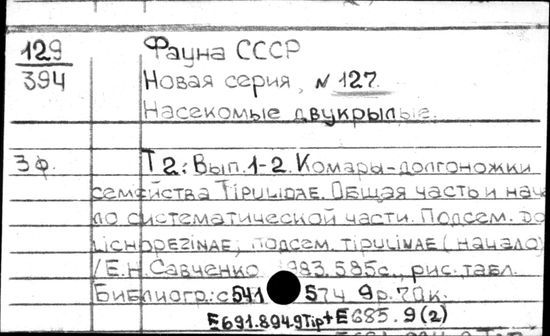 129
394
Фауна СССР
Новая серия, N 127.
Насекомые двукрылые.
3ф.
Т 2: Вып. 1-2. Комары-долгоножки
семейства TIPULIDAE. Общая часть и нача
ло систематической части. Подсем. DO
LICHOPEZINAE, подсем. TIPULINAE (начало)
/Е.Н. Савченко 1983. 585с., рис., табл.
Библиогр.: с 541 574 9р. 70к.
E691.8949Tip+E685.9(2)